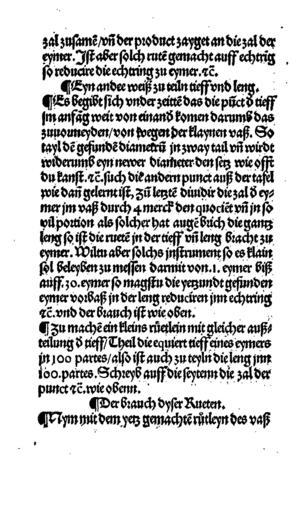 zal zusamē/ vñ der product zayget an die zal der
eymer. Ist aber solch rutē gemacht auff echtrig
so reducire die echtring zu eymer. ⁊c.
¶Eyn andee weiß zu teiln tieff vnd leng.
¶Es begibt sich vnder zeittē das die pūct ď tieff
jm anfāg weit von einand komen darumb das
zuuoꝛneyden/ von wegen der klaynen vaß. So
tayl dē gefundē diametrū jn zway tail vñ wirdt
widerumb eyn newer diameter den setz wie offt
du kanst. ⁊c. such die andern punct auß der tafel
wie dañ gelernt ist. Zū letztē diuidir die zal ď ey-
mer jm vaß durch 4 merck den quociēt vñ jn so
vil portion als solcher hat augē brich die gantz
leng so ist die ruetē jn der tieff vñ leng bracht zu
eymer. Wiltu aber solchs jnstrument so es klain
sol beleyben zu messen darmit von .1. eymer biß
auff .30. eymer so magstu die yetzundt gefunden
eymer vorbaß jn der leng reduciren jnn echtring
⁊c. vnd der brauch ist wie oben.
¶Zu machē ein kleins rūetlein mit gleicher auß-
teilung ď tieff/ Theil die equiert tieff eines eymers
in 100 partes/ also ist auch zu teyln die leng jnn
100. partes. Schreyb auff die seytenn die zal der
punct ⁊c. wie obenn.
¶Der brauch dyser Rueten.
¶Nym mit dem yetz gemachtē rūtleyn des vaß